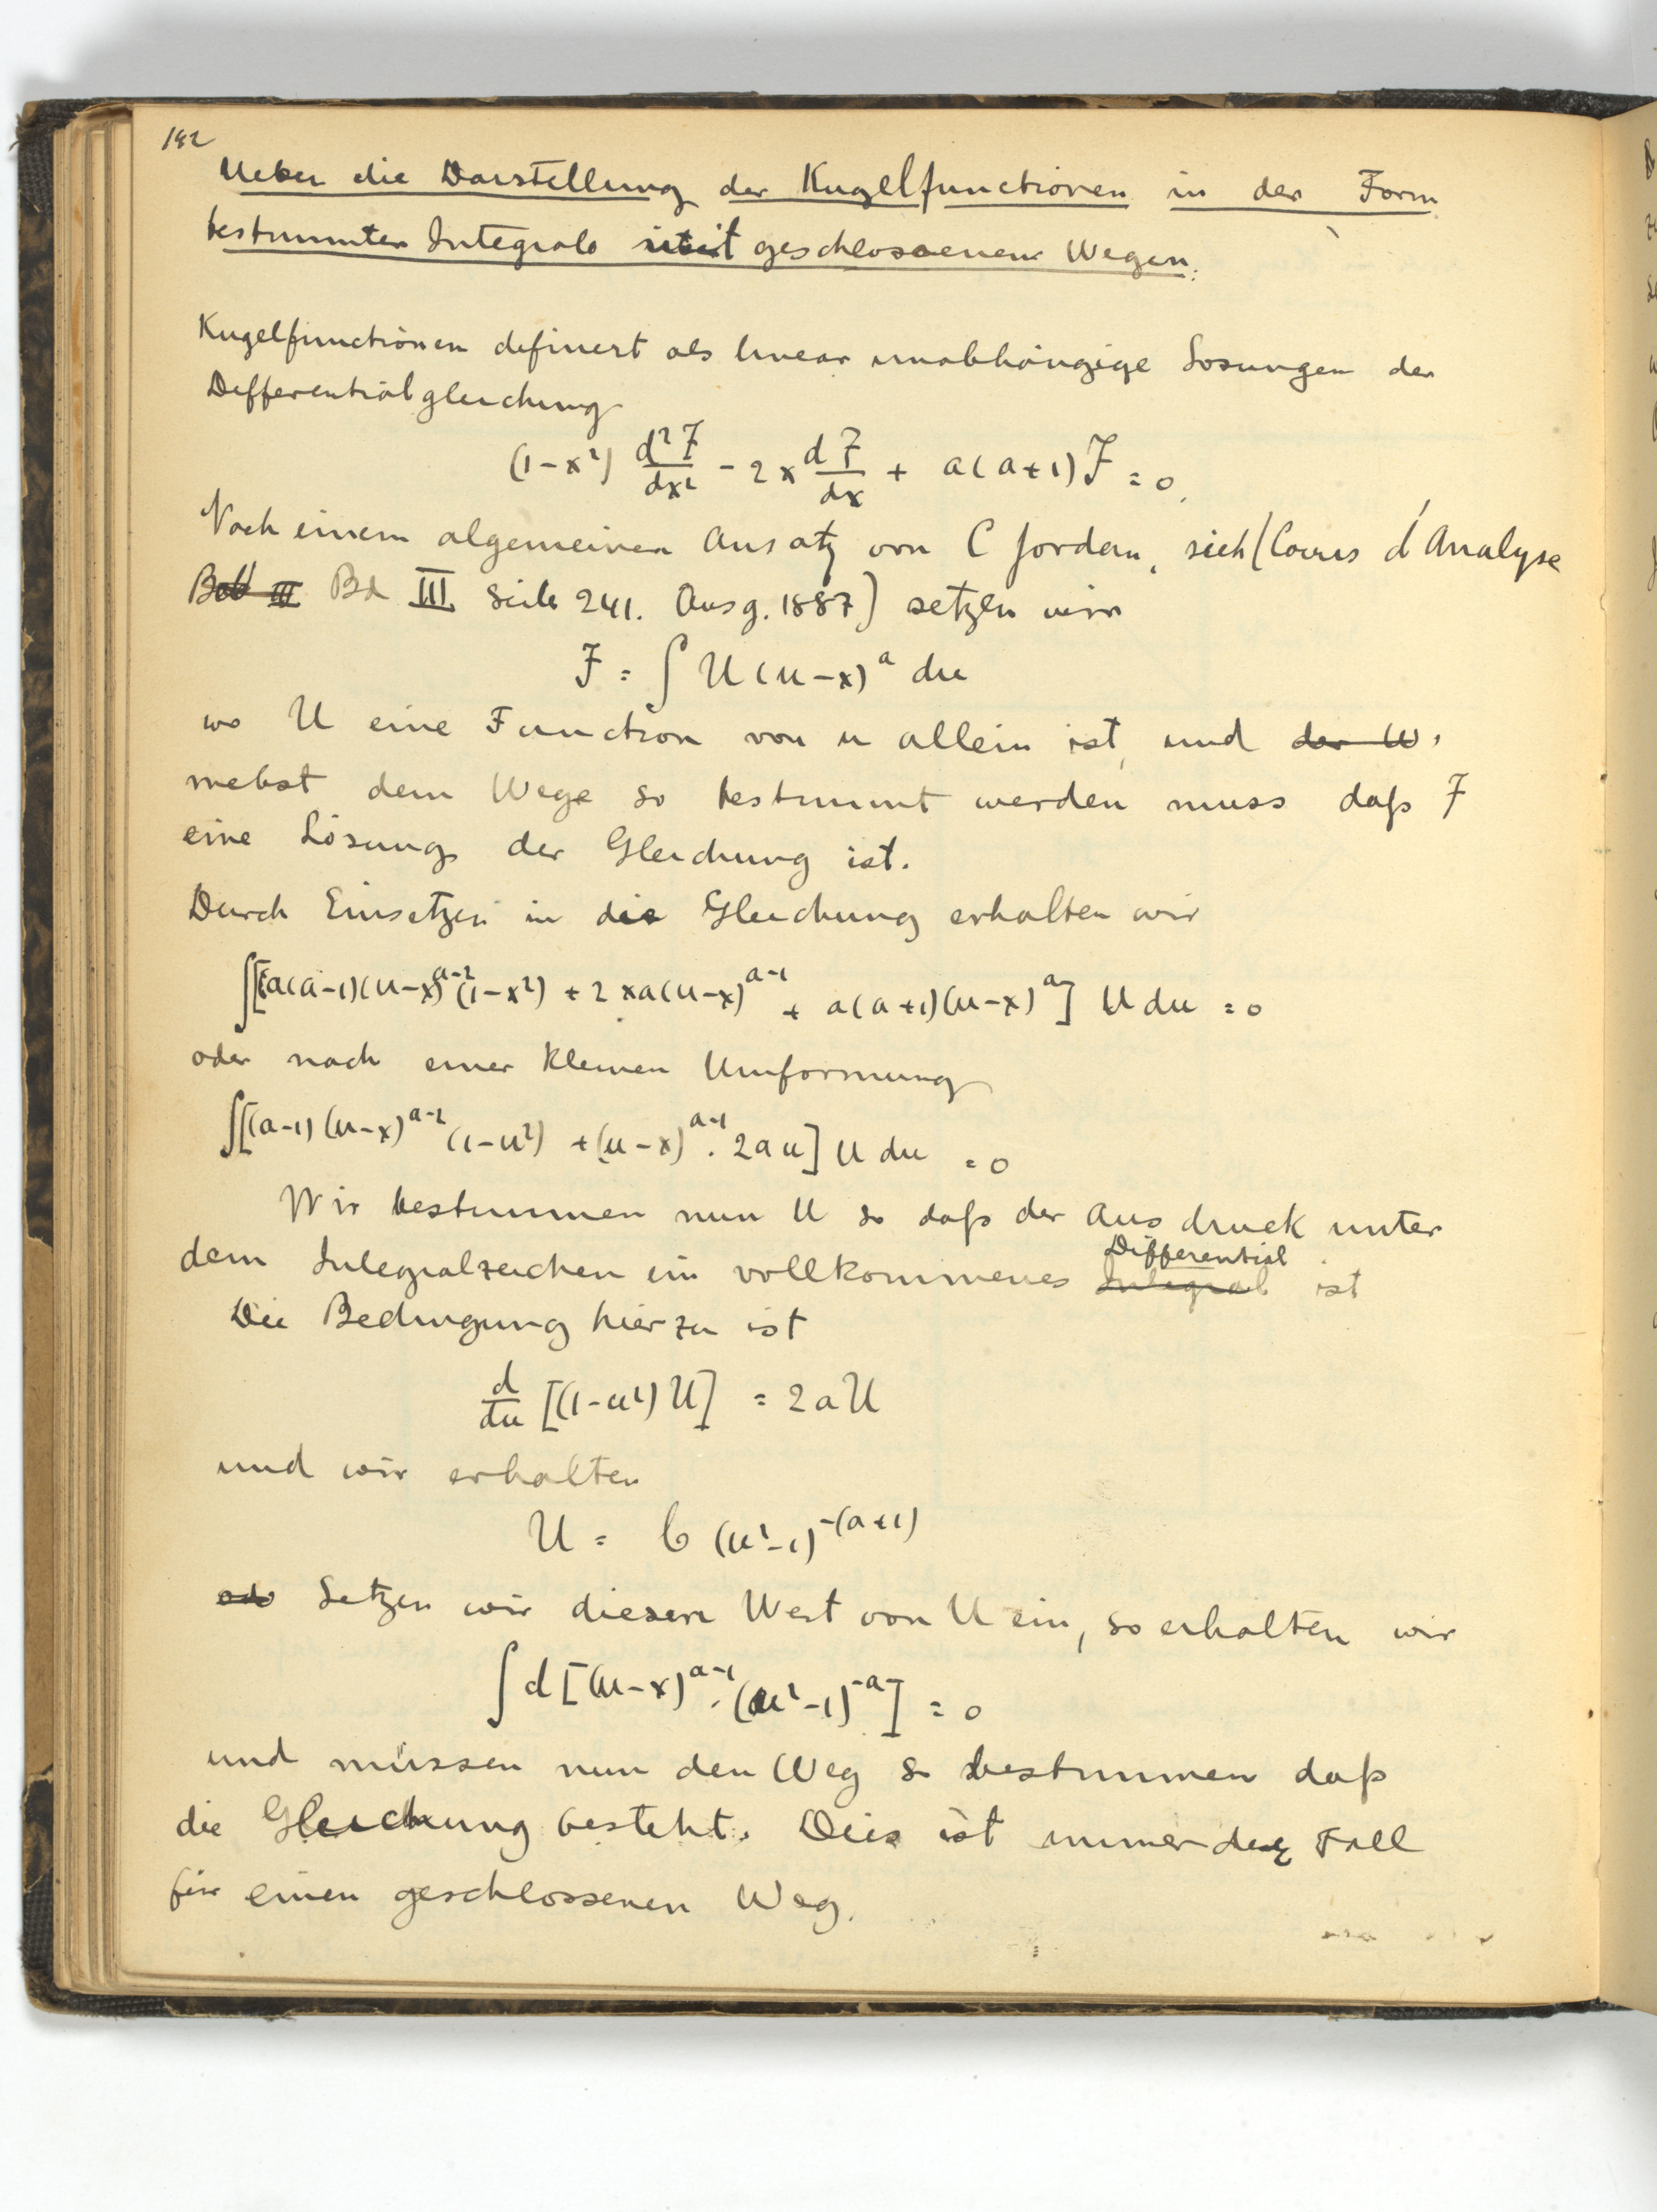 142
Ueber die Darstellung der Kugelfunctionen in der Form
bestimmter Integrale mit geschlossenen Wegen.
Kugelfunctionen definert als linear unabhängige Lösungen der
Differentialgleichung
(1-x²) d²F/dx² - 2x dF/dx + a(a+1)F = 0.
Nach einem algemeinen Ansatz von C Jordan, sieh (Cours d'Analyse
Bd III Bd III Seite 241. Ausg. 1887) setzen wir
F = ∫ U(u-x)^a du
wo U eine Function von u allein ist, und der W.
nebst dem Wege so bestimmt werden muss daß F
eine Lösung der Gleichung ist.
Durch Einsetzen in die Gleichung erhalten wir
∫[a(a-1)(u-x)^{a-2}(1-x²) + 2xa(u-x)^{a-1} + a(a+1)(u-x)^a] U du = 0
oder nach einer kleinen Umformung
∫[(a-1)(u-x)^{a-2}(1-u²) + (u-x)^{a-1}. 2au] U du = 0
Wir bestimmen nun U so daß der Ausdruck unter
dem Integralzeichen ein vollkommenes Integral Differential ist
Die Bedingung hierzu ist
d/du [(1-u²)U] = 2aU
und wir erhalten
U = C (u²-1)^{-(a+1)}
Setzen wir diesen Wert von U ein, so erhalten wir
∫ d[(u-x)^{a-1}. (u²-1)^{-a}] = 0
und müssen nun den Weg so bestimmen daß
die Gleichung besteht. Dies ist immer der Fall
für einen geschlossenen Weg.